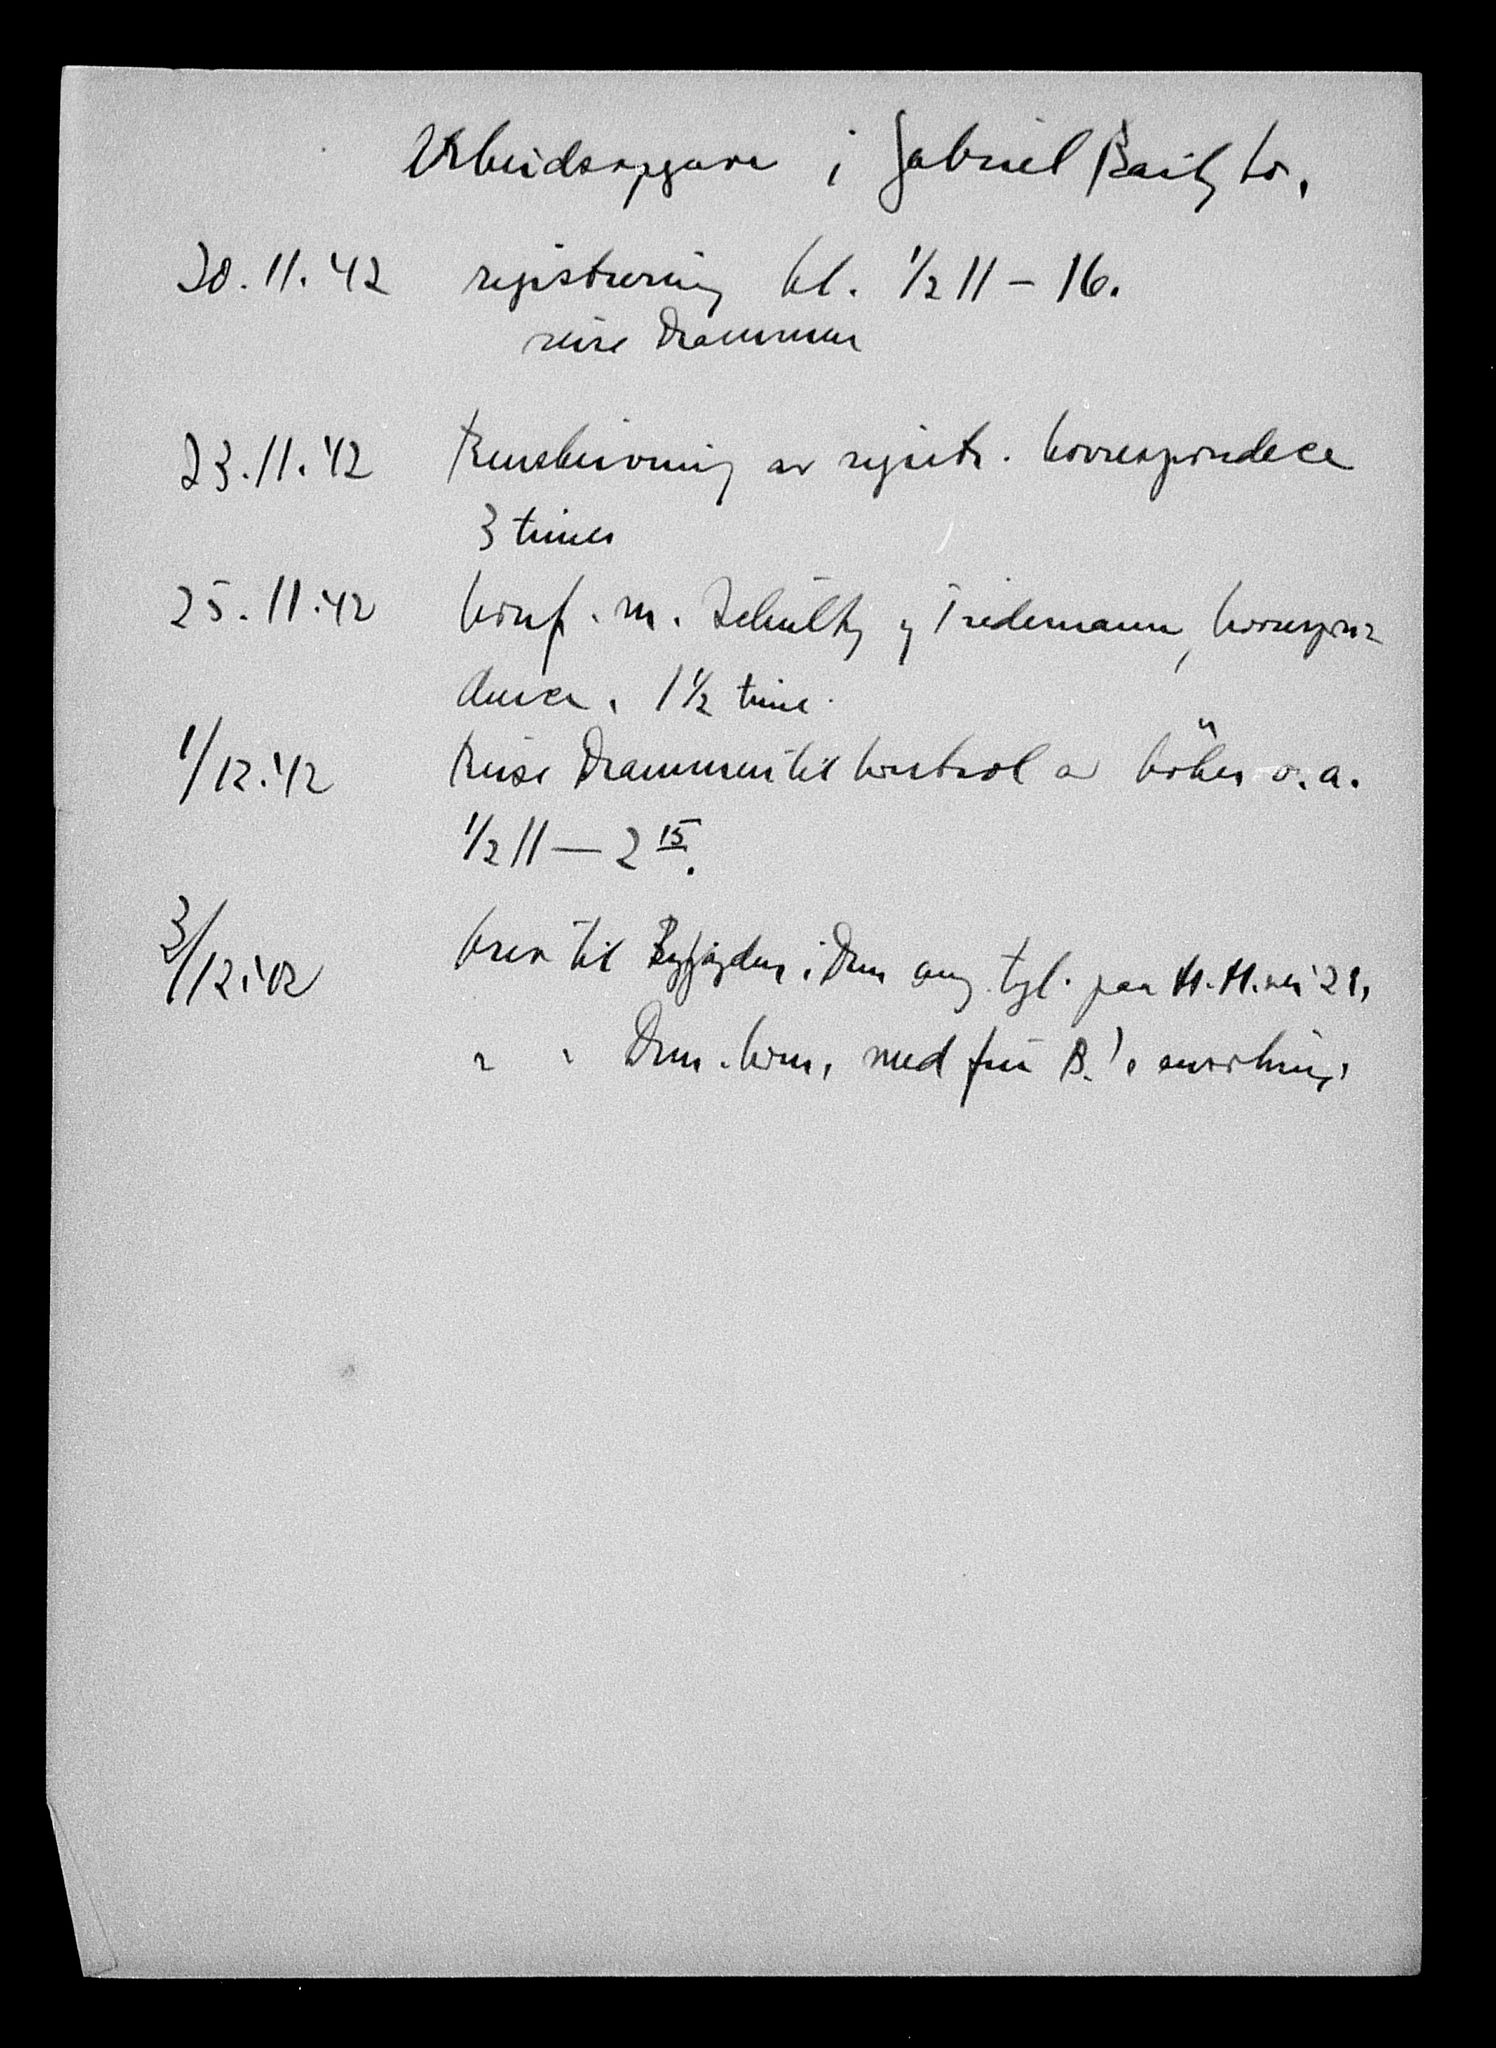 Arbeidsopgave i Gabriel Bo.
20.11.42 registrering kl. ½ 11 – 16.
reise Drammen
23.11.42 Renskrivning av registr. korrespondece
3 timer
25.11.42 konf. m. Schultz og Tiedemann, korrespon-
dence. 1½ time.
1/12.42 Reise Drammen til kontrol av bøker o.a.
½ 11 — 2 15.
3/12.42 brev til Byfogden i Drm ang. tgl. paa H.H.vei 21.
" " Drm. kom. med fru B.'s